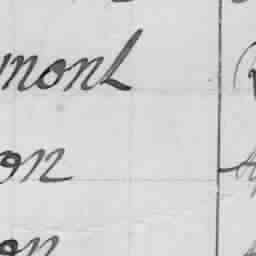 mont
on
on